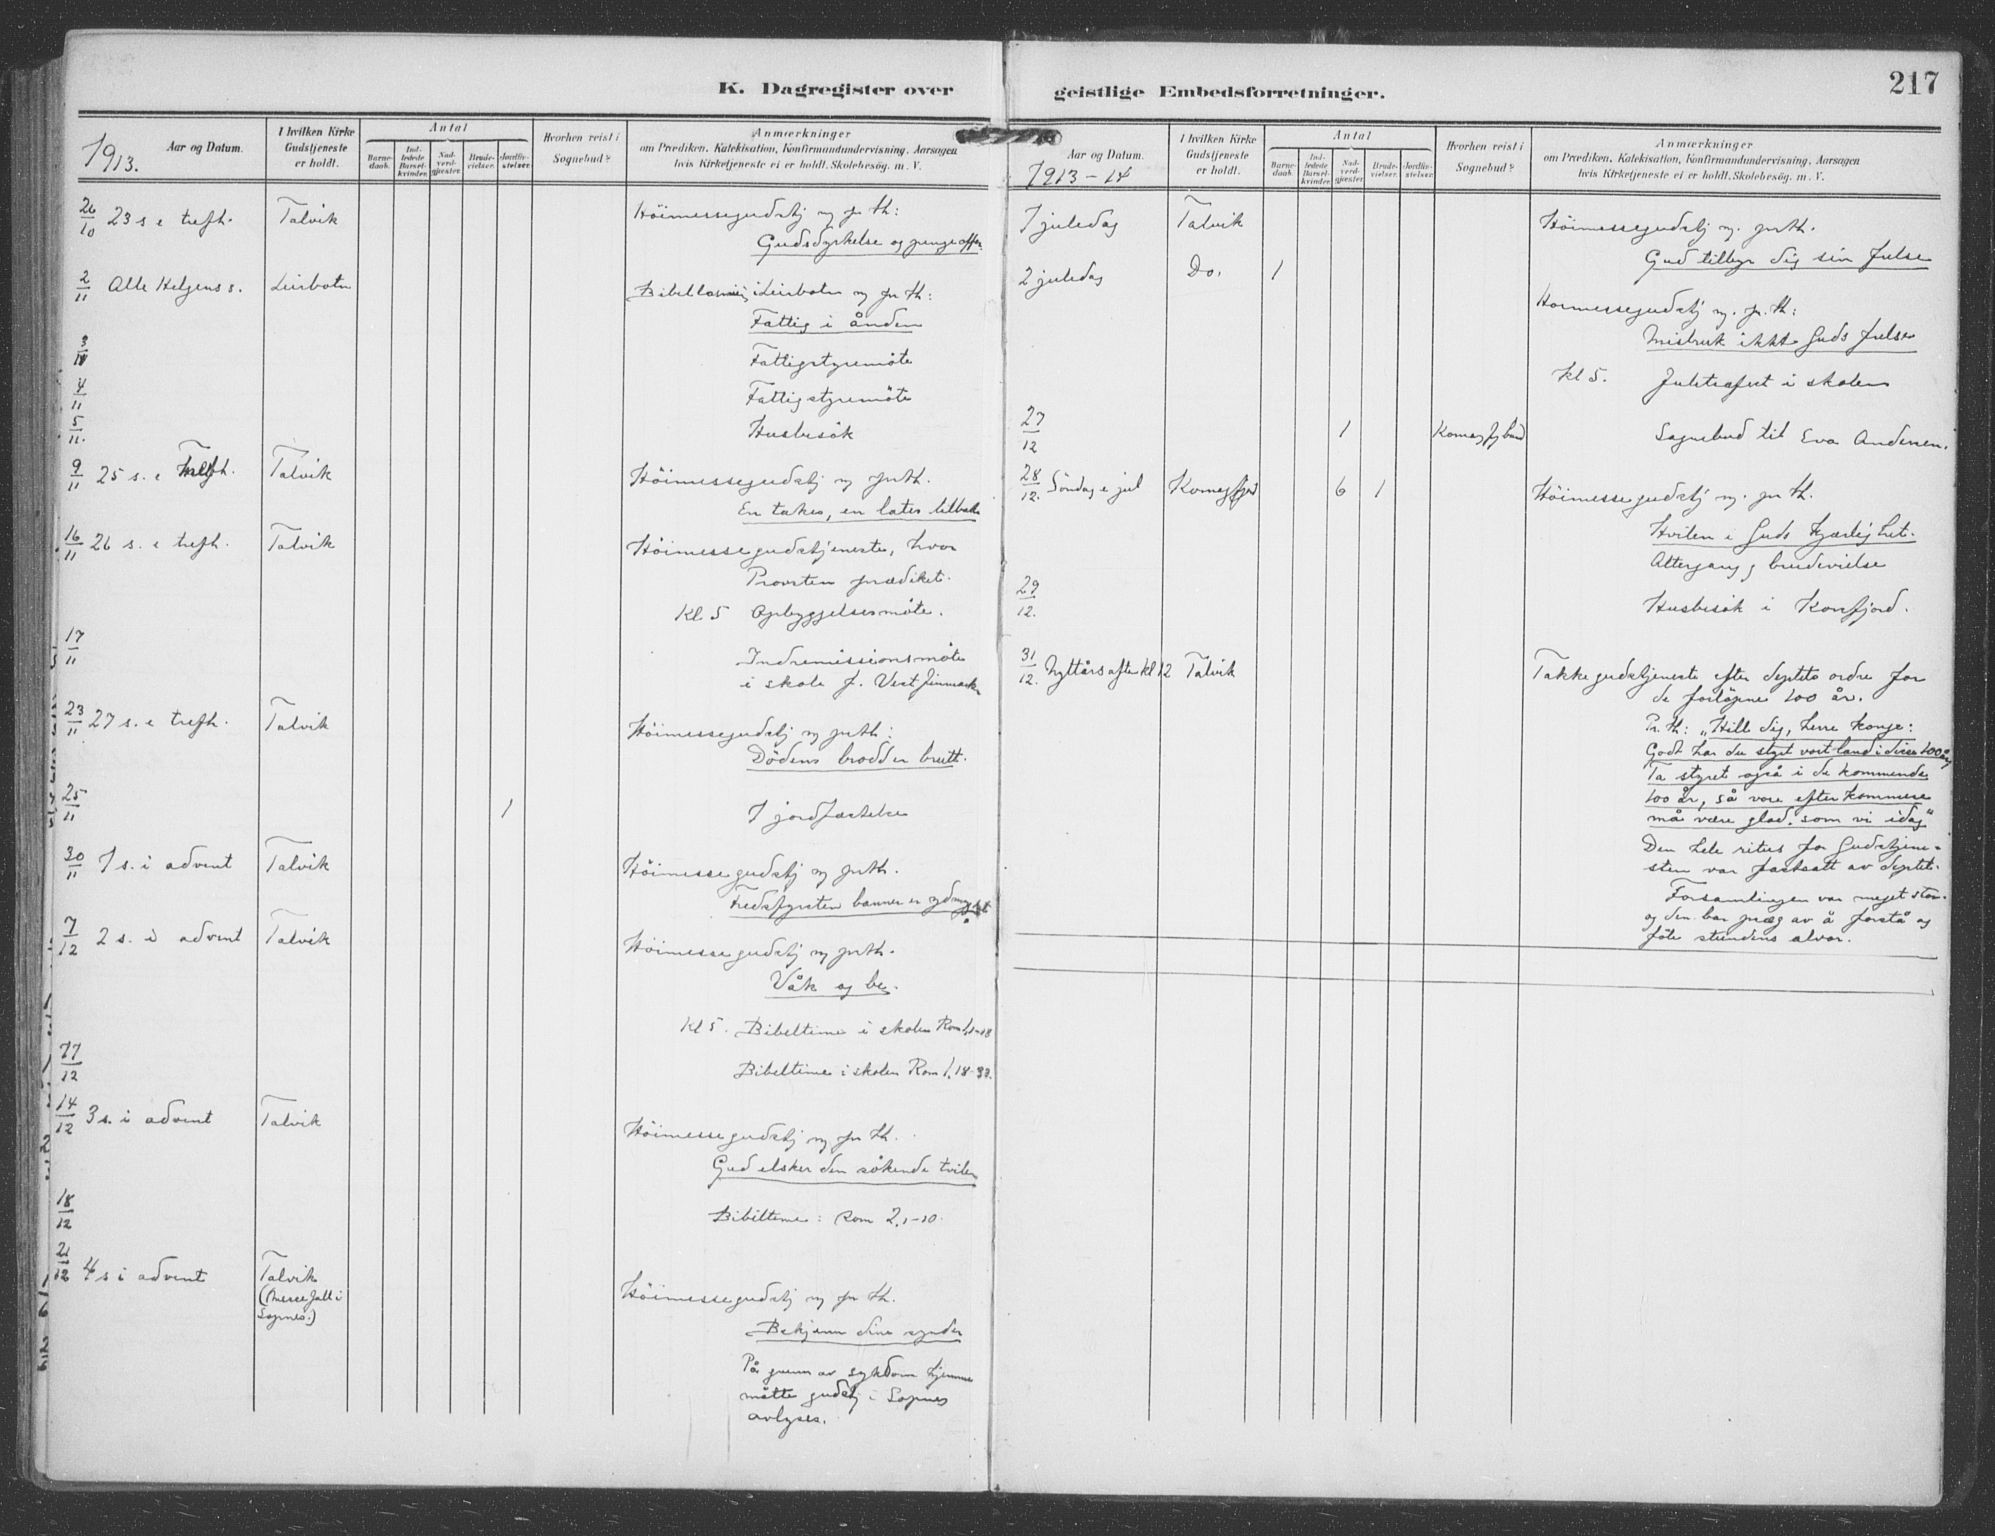 K. Dagregister over geistlige Embedsforretninger.
217
1913.
Aar og Datum.
I hvilken Kirke Gudstjeneste er holdt.
Antal
Barnedaab.
Indledede Barselkvinder.
Nadverdgjæster.
Brudevielser.
Jordfæstelser.
Hvorhen reist i Sognebud?
Anmærkninger
om Prædiken, Katekisation, Konfirmandundervisning, Aarsagen
hvis Kirketjeneste ei er holdt, Skolebesøg. m. V.
26/10 23 s e trefh. Talvik Höimessegudstj m pr th:
Gudsdyrkelse og pengeoffer
2/11 Alle Helgens s. Leirbotn i Leirbotn m pr th:
Fattig i ånden
3/11 Fattigstyremöte
4/11 Fattigstyremöte
5/11. Husbesök
9/11 25 s. e Trefh. Talvik Höimessegudstj m pr th.
En takes, en lates tilbake
16/11 26 s. e trefh. Talvik Höimessegudstjeneste, hvor
Provsten prædiket.
Kl 5 Opbyggelsesmöte.
17/11 Indremissionsmöte
i skole f. Vestfinmarken
23/11 27 s. e trefh. Talvik Höimessegudstj m pr th:
Dödens brodd er brutt.
25/11 1 1 jordfæstelse
30/11 1 s. i advent Talvik Höimessegudstj m pr th.
Fredsfyrsten banner er ydmyghet
7/12 2 s. i advent Talvik Höimessegudstj m pr th.
Våk og be.
Kl 5. Bibeltime i skolen Rom 1,1-18
Bibeltime i skolen Rom 1,18-32.
14/12 3 s. i advent Talvik Höimessegudstj m pr th.
Gud elsker den sökende tviler
18/12 Bibeltime: Rom 2,1-10.
21/12 4 s i advent Talvik
(Messefall i
Sopnes.)
Höimessegudstj m pr th.
Bekjenn dine synder
På grunn av sykdom hjemme
måtte gudstj i Sopnes
avlyses.
1913-14
Aar og Datum.
I hvilken Kirke Gudstjeneste er holdt.
Antal
Barnedaab.
Indledede Barselkvinder.
Nadverdgjæster.
Brudevielser.
Jordfæstelser.
Hvorhen reist i Sognebud?
Anmærkninger
om Prædiken, Katekisation, Konfirmandundervisning, Aarsagen
hvis Kirketjeneste ei er holdt, Skolebesøg. m. V.
1 juledag Talvik Höimessegudstj m. pr th.
Gud tilbyr dig sin frelse
2 juledag Do. 1 Hoimessegudstj m. pr. th:
Misbruk ikke Guds frelse
Kl 5. Juletræfest i skolen
27/12 1 Komagfjord Sognebud til Eva Andersen.
28/12. Söndag i jul Komagfjord 6 1 Höimessegudstj m. pr th.
Hvilen i Guds kjærlighet.
Altergang, brudevielse
29/12. Husbesök i Korsfjord.
31/12. Nyttårsaften kl 12 Talvik Takkegudstjeneste efter deptets ordre for
de forløpne 100 år.
Pr. th: „Hill dig, herre konge:
Godt har du styrt vort land i disse 100 år
Ta styret også i de kommende
100 år, så vore efterkommere
må være glad, som vi idag"
Den hele ritus for Gudstjene-
sten var fastsatt av deptet.
Forsamlingen var meget stor
og den bar præg av å forstå og
föle stundens alvor.